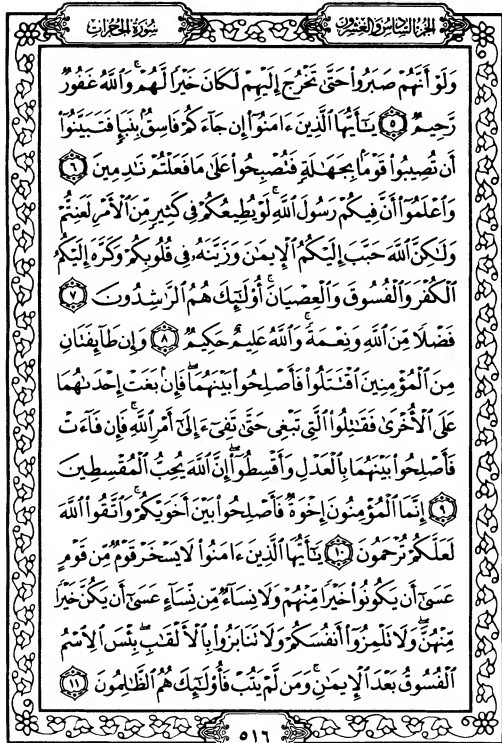 الجزء السادس والعشرون
سورة الحجرات
وَلَوْ أَنَّهُمْ صَبَرُوا۟ حَتَّىٰ تَخْرُجَ إِلَيْهِمْ لَكَانَ خَيْرًا لَّهُمْ ۚ وَٱللَّهُ غَفُورٌ
رَّحِيمٌ ۝٥ يَـٰٓأَيُّهَا ٱلَّذِينَ ءَامَنُوٓا۟ إِن جَآءَكُمْ فَاسِقٌۢ بِنَبَإٍ فَتَبَيَّنُوٓا۟
أَن تُصِيبُوا۟ قَوْمًۢا بِجَهَـٰلَةٍ فَتُصْبِحُوا۟ عَلَىٰ مَا فَعَلْتُمْ نَـٰدِمِينَ ۝٦
وَٱعْلَمُوٓا۟ أَنَّ فِيكُمْ رَسُولَ ٱللَّهِ ۚ لَوْ يُطِيعُكُمْ فِى كَثِيرٍ مِّنَ ٱلْأَمْرِ لَعَنِتُّمْ
وَلَـٰكِنَّ ٱللَّهَ حَبَّبَ إِلَيْكُمُ ٱلْإِيمَـٰنَ وَزَيَّنَهُۥ فِى قُلُوبِكُمْ وَكَرَّهَ إِلَيْكُمُ
ٱلْكُفْرَ وَٱلْفُسُوقَ وَٱلْعِصْيَانَ ۚ أُو۟لَـٰٓئِكَ هُمُ ٱلرَّٰشِدُونَ ۝٧
فَضْلًا مِّنَ ٱللَّهِ وَنِعْمَةً ۚ وَٱللَّهُ عَلِيمٌ حَكِيمٌ ۝٨ وَإِن طَآئِفَتَانِ
مِنَ ٱلْمُؤْمِنِينَ ٱقْتَتَلُوا۟ فَأَصْلِحُوا۟ بَيْنَهُمَا ۖ فَإِنۢ بَغَتْ إِحْدَىٰهُمَا
عَلَى ٱلْأُخْرَىٰ فَقَـٰتِلُوا۟ ٱلَّتِى تَبْغِى حَتَّىٰ تَفِىٓءَ إِلَىٰٓ أَمْرِ ٱللَّهِ ۚ فَإِن فَآءَتْ
فَأَصْلِحُوا۟ بَيْنَهُمَا بِٱلْعَدْلِ وَأَقْسِطُوٓا۟ ۖ إِنَّ ٱللَّهَ يُحِبُّ ٱلْمُقْسِطِينَ
۝٩ إِنَّمَا ٱلْمُؤْمِنُونَ إِخْوَةٌ فَأَصْلِحُوا۟ بَيْنَ أَخَوَيْكُمْ ۚ وَٱتَّقُوا۟ ٱللَّهَ
لَعَلَّكُمْ تُرْحَمُونَ ۝١٠ يَـٰٓأَيُّهَا ٱلَّذِينَ ءَامَنُوا۟ لَا يَسْخَرْ قَوْمٌ مِّن قَوْمٍ
عَسَىٰٓ أَن يَكُونُوا۟ خَيْرًا مِّنْهُمْ وَلَا نِسَآءٌ مِّن نِّسَآءٍ عَسَىٰٓ أَن يَكُنَّ خَيْرًا
مِّنْهُنَّ ۖ وَلَا تَلْمِزُوٓا۟ أَنفُسَكُمْ وَلَا تَنَابَزُوا۟ بِٱلْأَلْقَـٰبِ ۖ بِئْسَ ٱلِٱسْمُ
ٱلْفُسُوقُ بَعْدَ ٱلْإِيمَـٰنِ ۚ وَمَن لَّمْ يَتُبْ فَأُو۟لَـٰٓئِكَ هُمُ ٱلظَّـٰلِمُونَ ۝١١
٥١٦